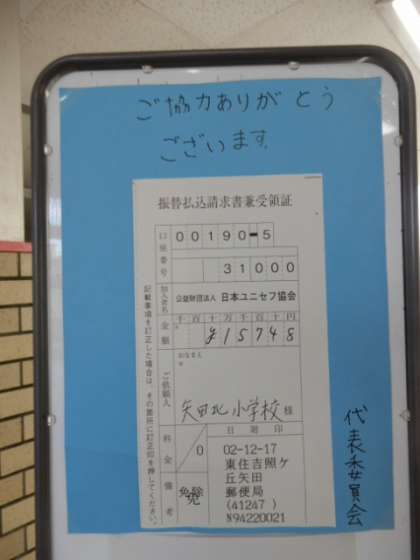 ご協力ありがとう
ございます
振替払込請求書兼受領証
口座番号
00190-5
31000
加入者名
公益財団法人 日本ユニセフ協会
金額
千百十万千百十円
¥15748
おなまえ
ご依頼人
矢田北小学校 様
料金
0
日附印
備考
免除
02-12-17
東住吉照ケ
丘矢田
郵便局
(41247)
N94220021
記載事項を訂正した場合は、その箇所に訂正印を押してください。
代表委員会